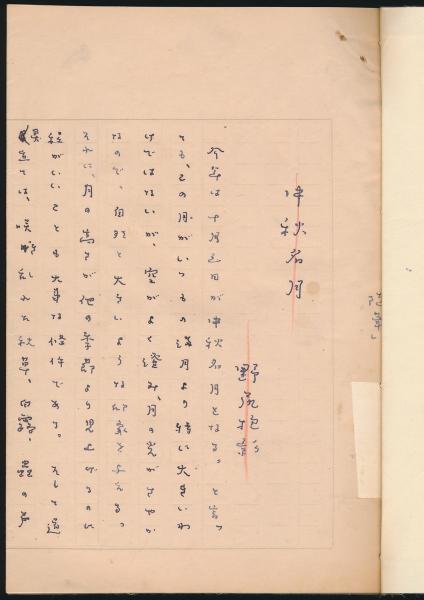 仲秋名月
野尻抱影
今年は十月 日が仲秋名月となる。と言つ
ても、この月がいつもの満月より特に大きいわ
けではないが、空がよく澄み、月の光がさやか
なので、自然と大きいような印象を与える。
それに、月の高さが他の季節より見上げるのに
程がいいことも大事な條件である。そして道
具立ては、咲き乱れた秋草、白露、蟲の声